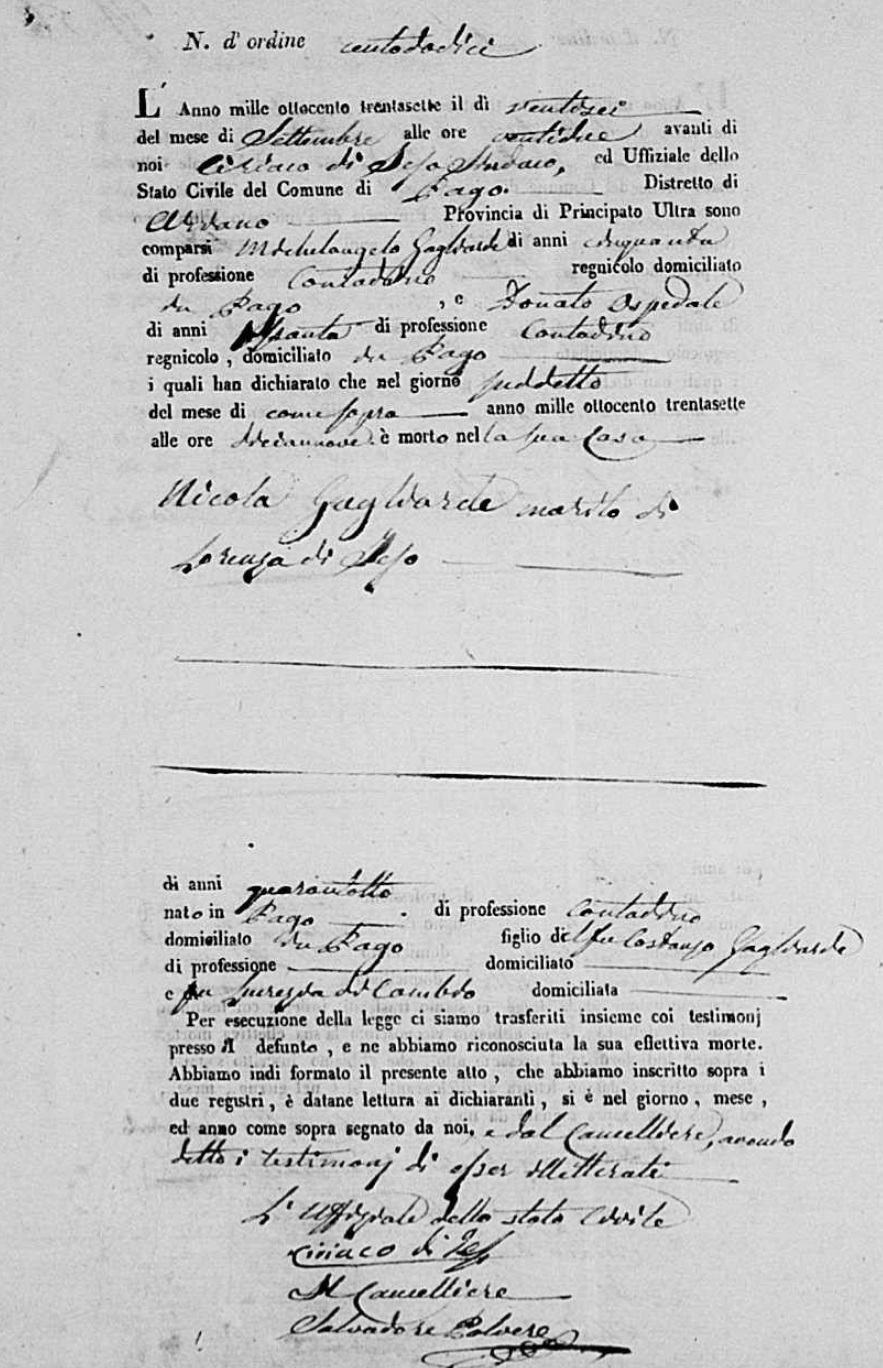 N. d' ordine centododici
L' Anno mille ottocento trentasette il dì ventisei
del mese di Settembre alle ore ventidue avanti di
noi Ciriaco di Sefo Sindaco, ed Uffiziale dello
Stato Civile del Comune di Pago. Distretto di
Ariano Provincia di Principato Ultra sono
comparsi Michelangelo Gagliarde di anni cinquanta
di professione Contadino regnicolo domiciliato
in Pago , e Donato Ospedale
di anni di professione Contadino
regnicolo , domiciliato in Pago
i quali han dichiarato che nel giorno suddetto
del mese di come sopra anno mille ottocento trentasette
alle ore diciannove è morto nella sua Casa
Nicola Gagliarde marito di
Lorenza di Sefo
di anni quarantotto
nato in Pago . di professione Contadino
domiciliato in Pago figlio del fu Costanzo Gagliarde
di professione domiciliato
e fu di domiciliata
Per esecuzione della legge ci siamo trasferiti insieme coi testimonj
presso il defunto , e ne abbiamo riconosciuta la sua effettiva morte.
Abbiamo indi formato il presente atto , che abbiamo inscritto sopra i
due registri , è datane lettura ai dichiaranti , si è nel giorno , mese ,
ed anno come sopra segnato da noi, e dal Cancelliere, avendo
detto i testimonj di esser illetterati
L' Uffiziale dello stato Civile
Ciriaco di Sefo
Il Cancelliere
Salvadore Polvere